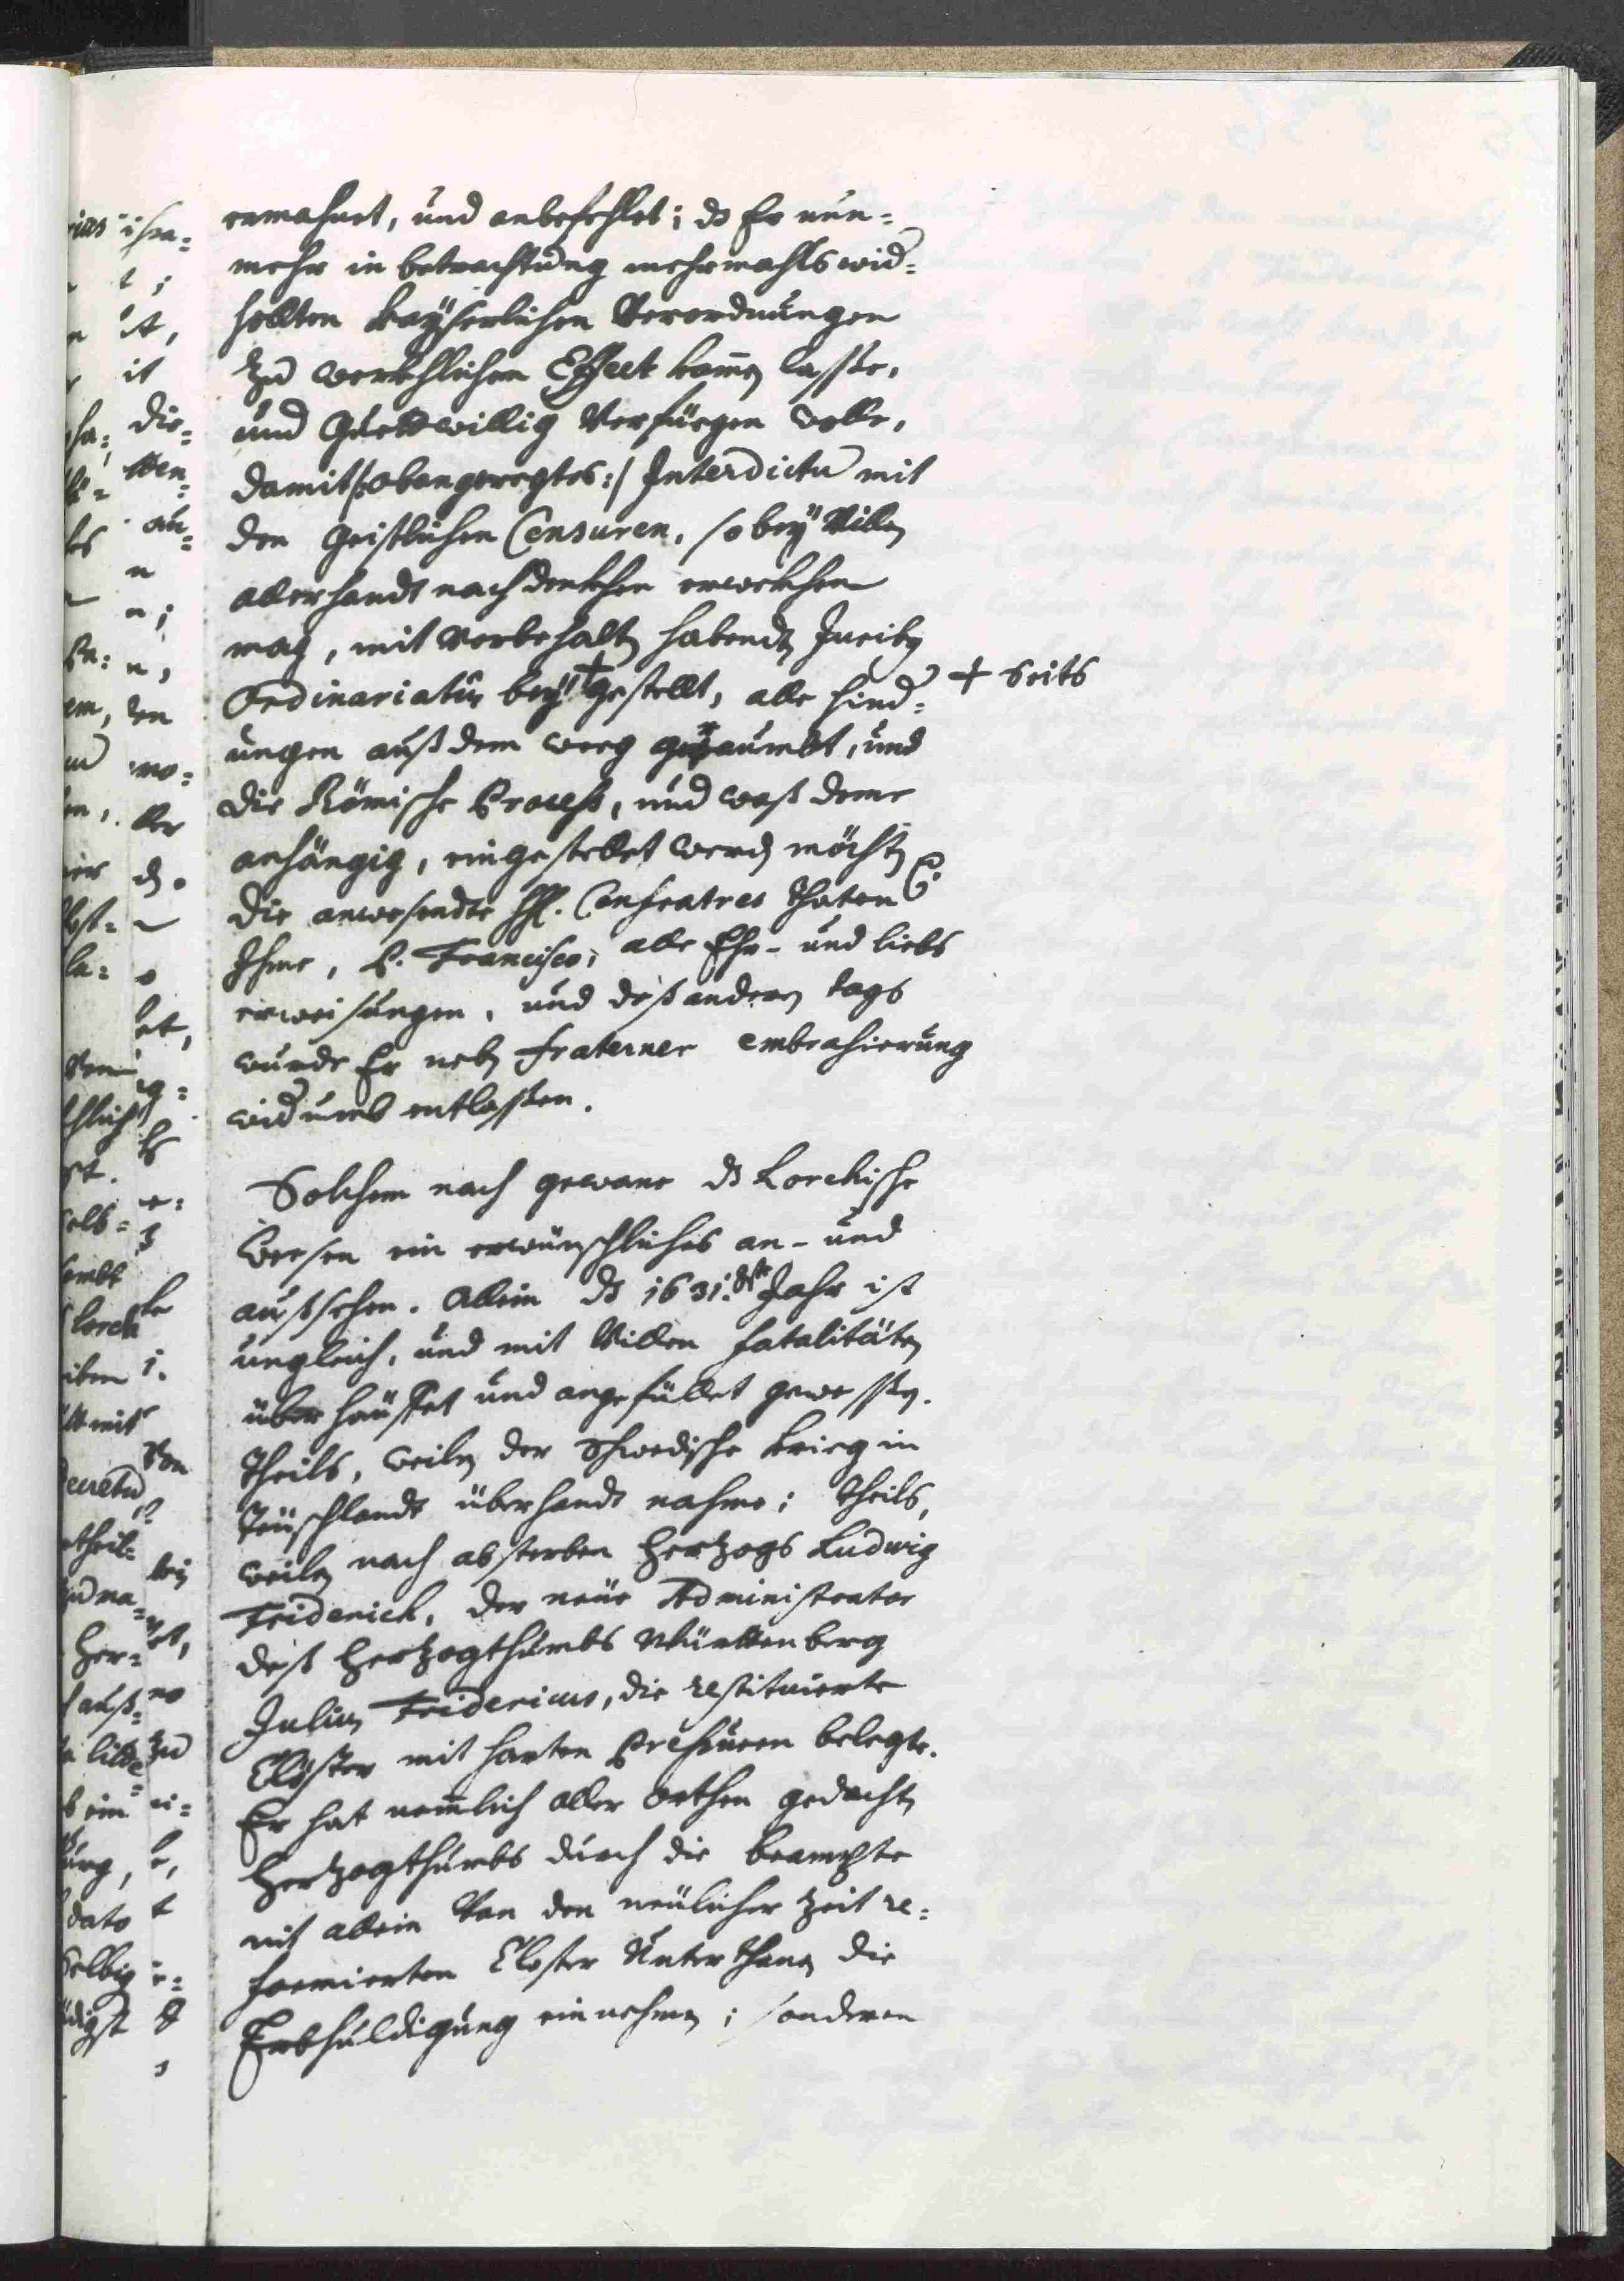 ermahnet, und anbefehlet; dz Er nun=
mehr in betrachtung mehrmahls wid=
hollten kayßerlichen Verordnungen
zu werckhlichen Effect komen lasse,
und Guettwillig Verfüegen wolle,
damit /:obengeregtes:/ Interdictu mit
den Geistlichen Censuren, so bey Villen
allerhandt nachdenkhen erwekhen
mag, mit Vorbehalt habendten Juriby
Ordinariatus bey + gestellt, alle hind=
+ Seits
ungen auß dem weeg geraumbt, und
die Römische Process, und waß deme
anhängig, eingestellet werden möchten &.
die anwesendte HH. Confratres thaten
Ihme, P. Francisco, alle Ehr- und liebs
erweisungen, und deß anderen tags
wurde Er neben fraterner embrasierung
widumb entlassen.
Solchem nach gewane dz Lorchische
Weesen ein erwünschliches an- und
außsehen. Allein dz 1631.ste Jahr ist
ungleich, und mit Villen fatalitäten
überhäuffet und angefüllet gewessen.
Theils, weilen der Schwedische krieg in
Teüschlandt überhandt nahme; theils,
weilen nach absterben Hertzogs Ludwig
Friderich, der neüe Administrator
deß Hertzogthumbs Würtenberg
Julius Fridericus, die restituierte
Clöster mit harten Pressuren belegte.
Er hat nemlich aller orthen gedachten
Hertzogthumbs durch die beampte
nit allein Von den neülicher Zeit re=
formierten Closter Unterthanen die
Erbhuldigung einnehmen; sonderen